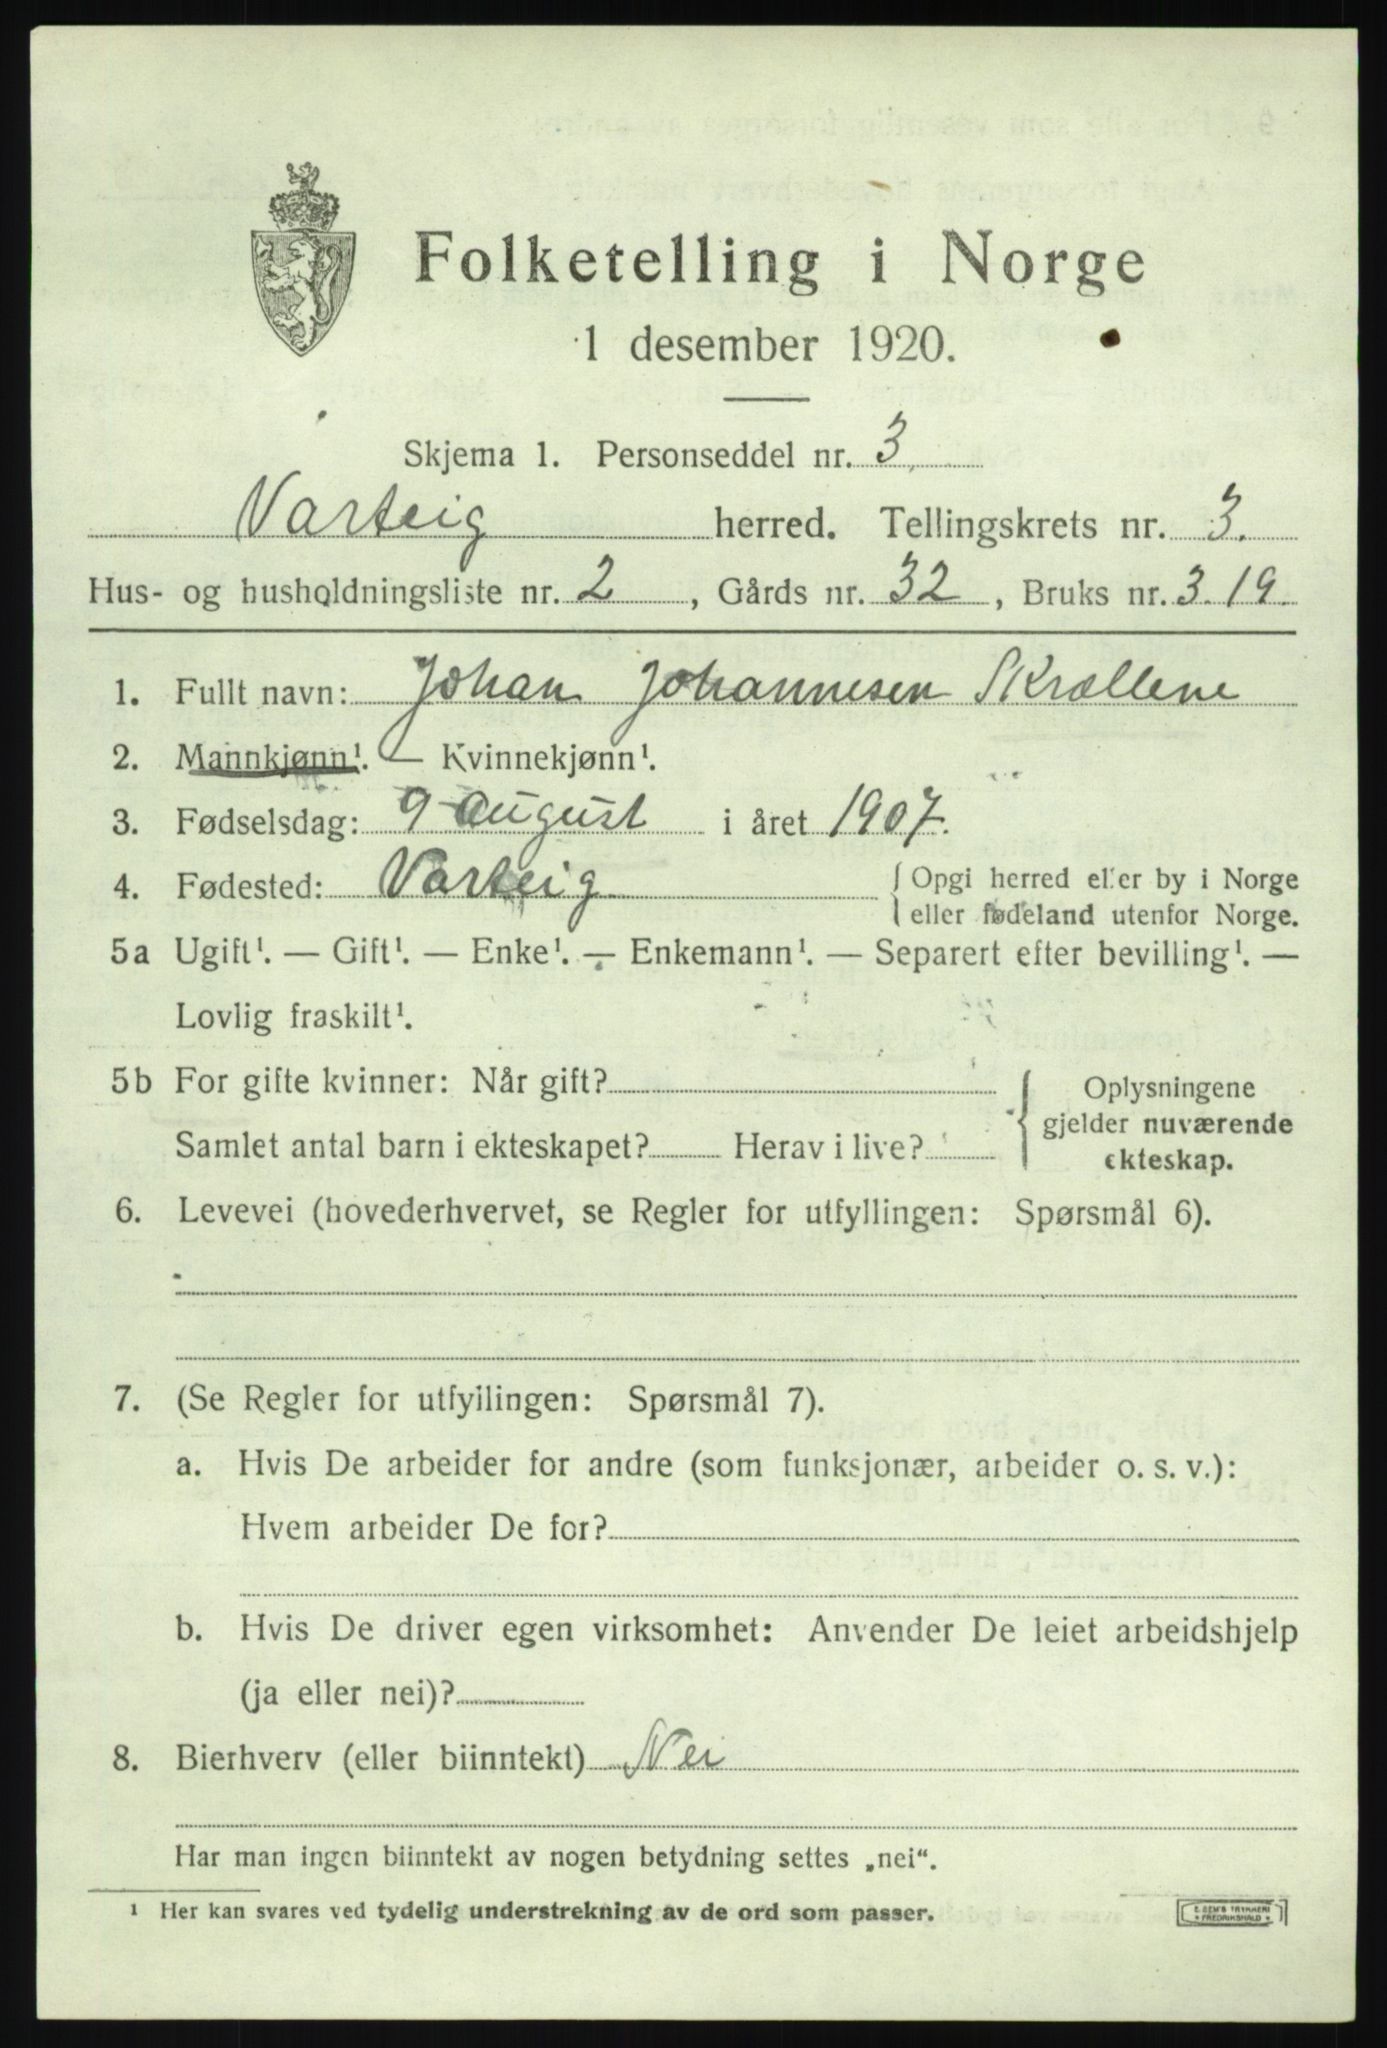 Folketelling i Norge
1 desember 1920.
Skjema 1. Personseddel nr. 3.
Varteig herred. Tellingskrets nr. 3.
Hus- og husholdningsliste nr. 2, Gårds nr. 32, Bruks nr. 3.19.
1. Fullt navn: Johan Johannesen Skrællene
2. Mannkjønn¹. — Kvinnekjønn¹.
3. Fødselsdag: 9 august i året 1907.
4. Fødested: Varteig { Opgi herred eller by i Norge
eller fødeland utenfor Norge.
5a Ugift¹. — Gift¹. — Enke¹. — Enkemann¹. — Separert efter bevilling¹. —
Lovlig fraskilt¹.
5b For gifte kvinner: Når gift?
Samlet antal barn i ekteskapet? Herav i live?
{ Oplysningene
gjelder nuværende
ekteskap.
6. Levevei (hovederhvervet, se Regler for utfyllingen: Spørsmål 6).
7. (Se Regler for utfyllingen: Spørsmål 7).
a. Hvis De arbeider for andre (som funksjonær, arbeider o. s. v.):
Hvem arbeider De for?
b. Hvis De driver egen virksomhet: Anvender De leiet arbeidshjelp
(ja eller nei)?
8. Bierhverv (eller biinntekt) Nei
Har man ingen biinntekt av nogen betydning settes „nei“.
¹ Her kan svares ved tydelig understrekning av de ord som passer.
E. SEM'S TRYKKERI
* FREDRIKSHALD *